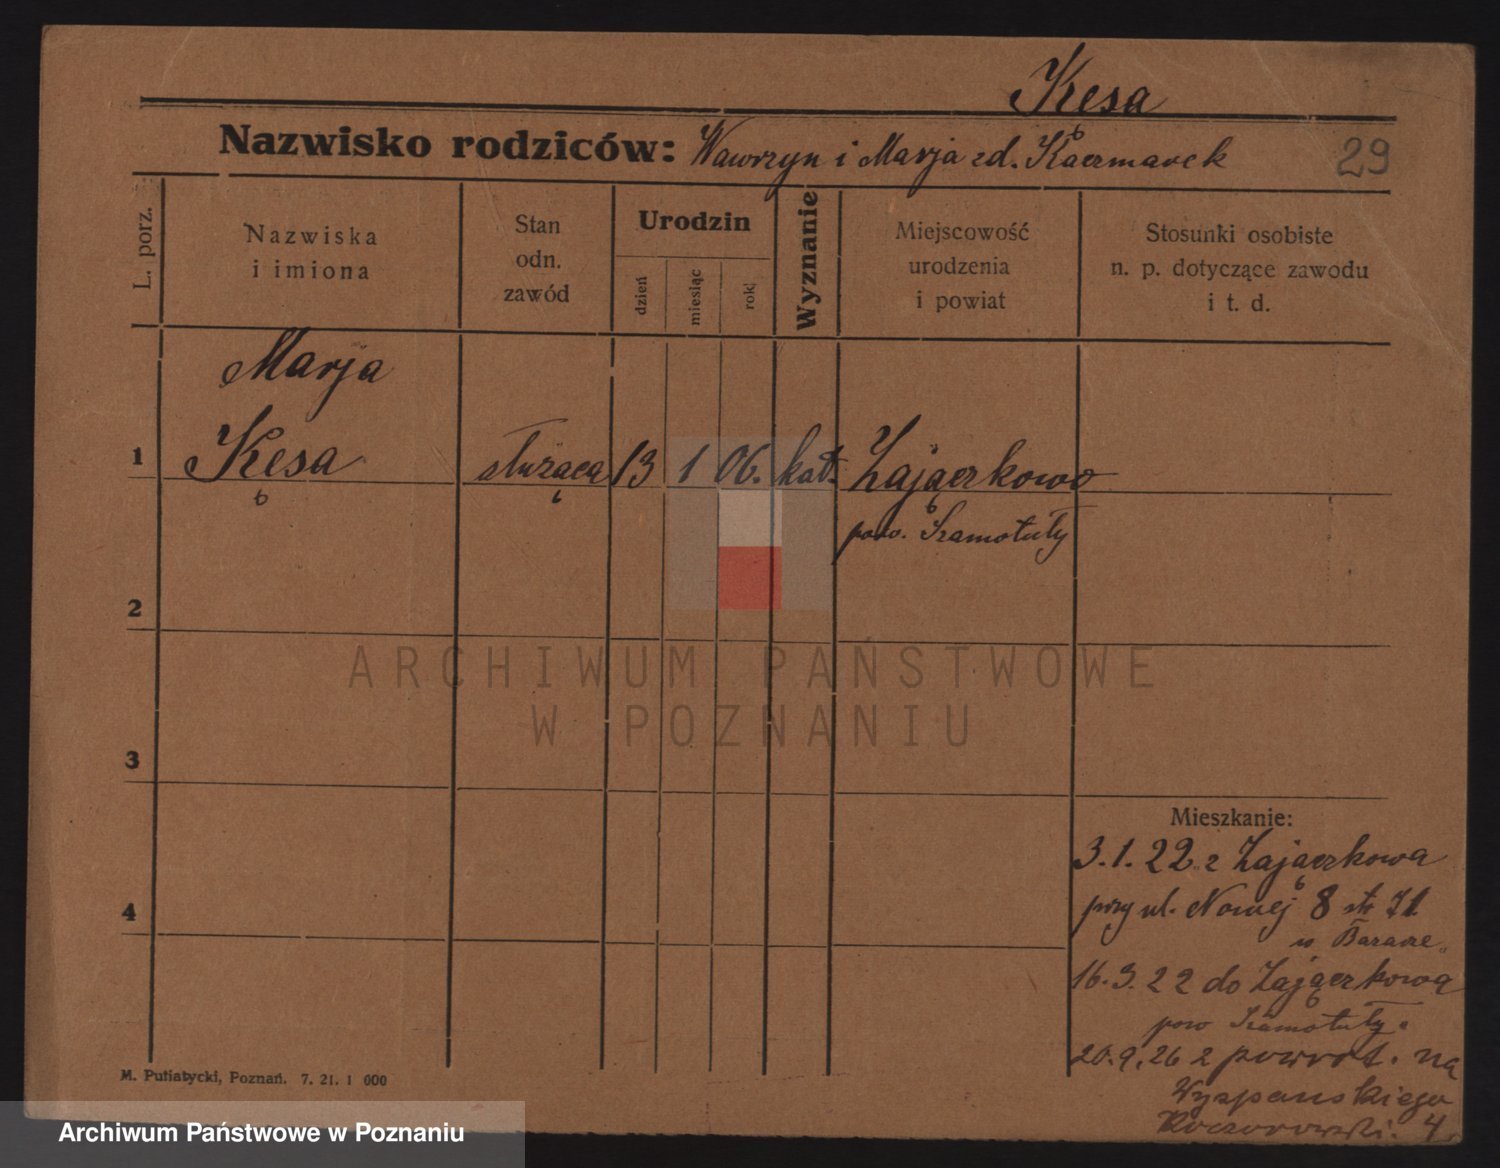 Kęsa
Nazwisko rodziców: Wawrzyn i Marja zd. Kaczmarek
29
L. porz.
Nazwiska
i imiona
Stan
odn.
zawód
Urodzin
dzień
miesiąc
rok
Wyznanie
Miejscowość
urodzenia
i powiat
Stosunki osobiste
n. p. dotyczące zawodu
i t. d.
Marja
1 Kęsa służąca 13 1 06. kat. Zajączkowo
pow. Szamotuły
2
3
4
ARCHIWUM PAŃSTWOWE
W POZNANIU
Mieszkanie:
3.1.22 z Zajączkowa
przy ul. Nowej 8 str 71
u
16.3.22 do Zajączkowa
pow Szamotuły.
20.9.26 z powrot. na
Wyspianskiego
4
M. Putiatycki, Poznań. 7. 21. 1 000
Archiwum Państwowe w Poznaniu